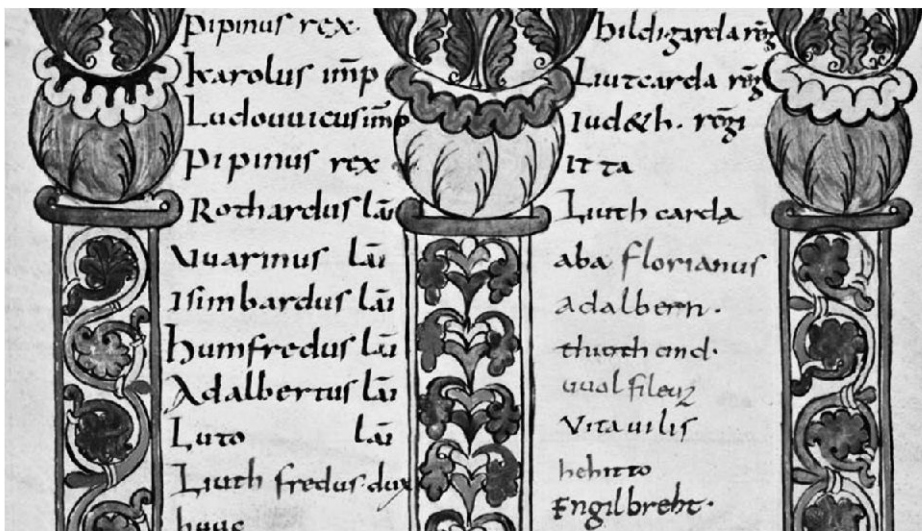 pipinus rex.
karolus imp̄
Ludouuicus imp̄
pipinus rex
Rothardus lāi
Uuarinus lāi
Isimbardus lāi
hunfredus lāi
Adalbertus lāi
Luto lāi
Liuth fredus dux
hildigarda reḡ
Liutcarda reḡ
Iud&h. reḡi
It ta
Liuth carda
aba florianus
adalbern.
Vitauilis
hehitto
Engilbreht.